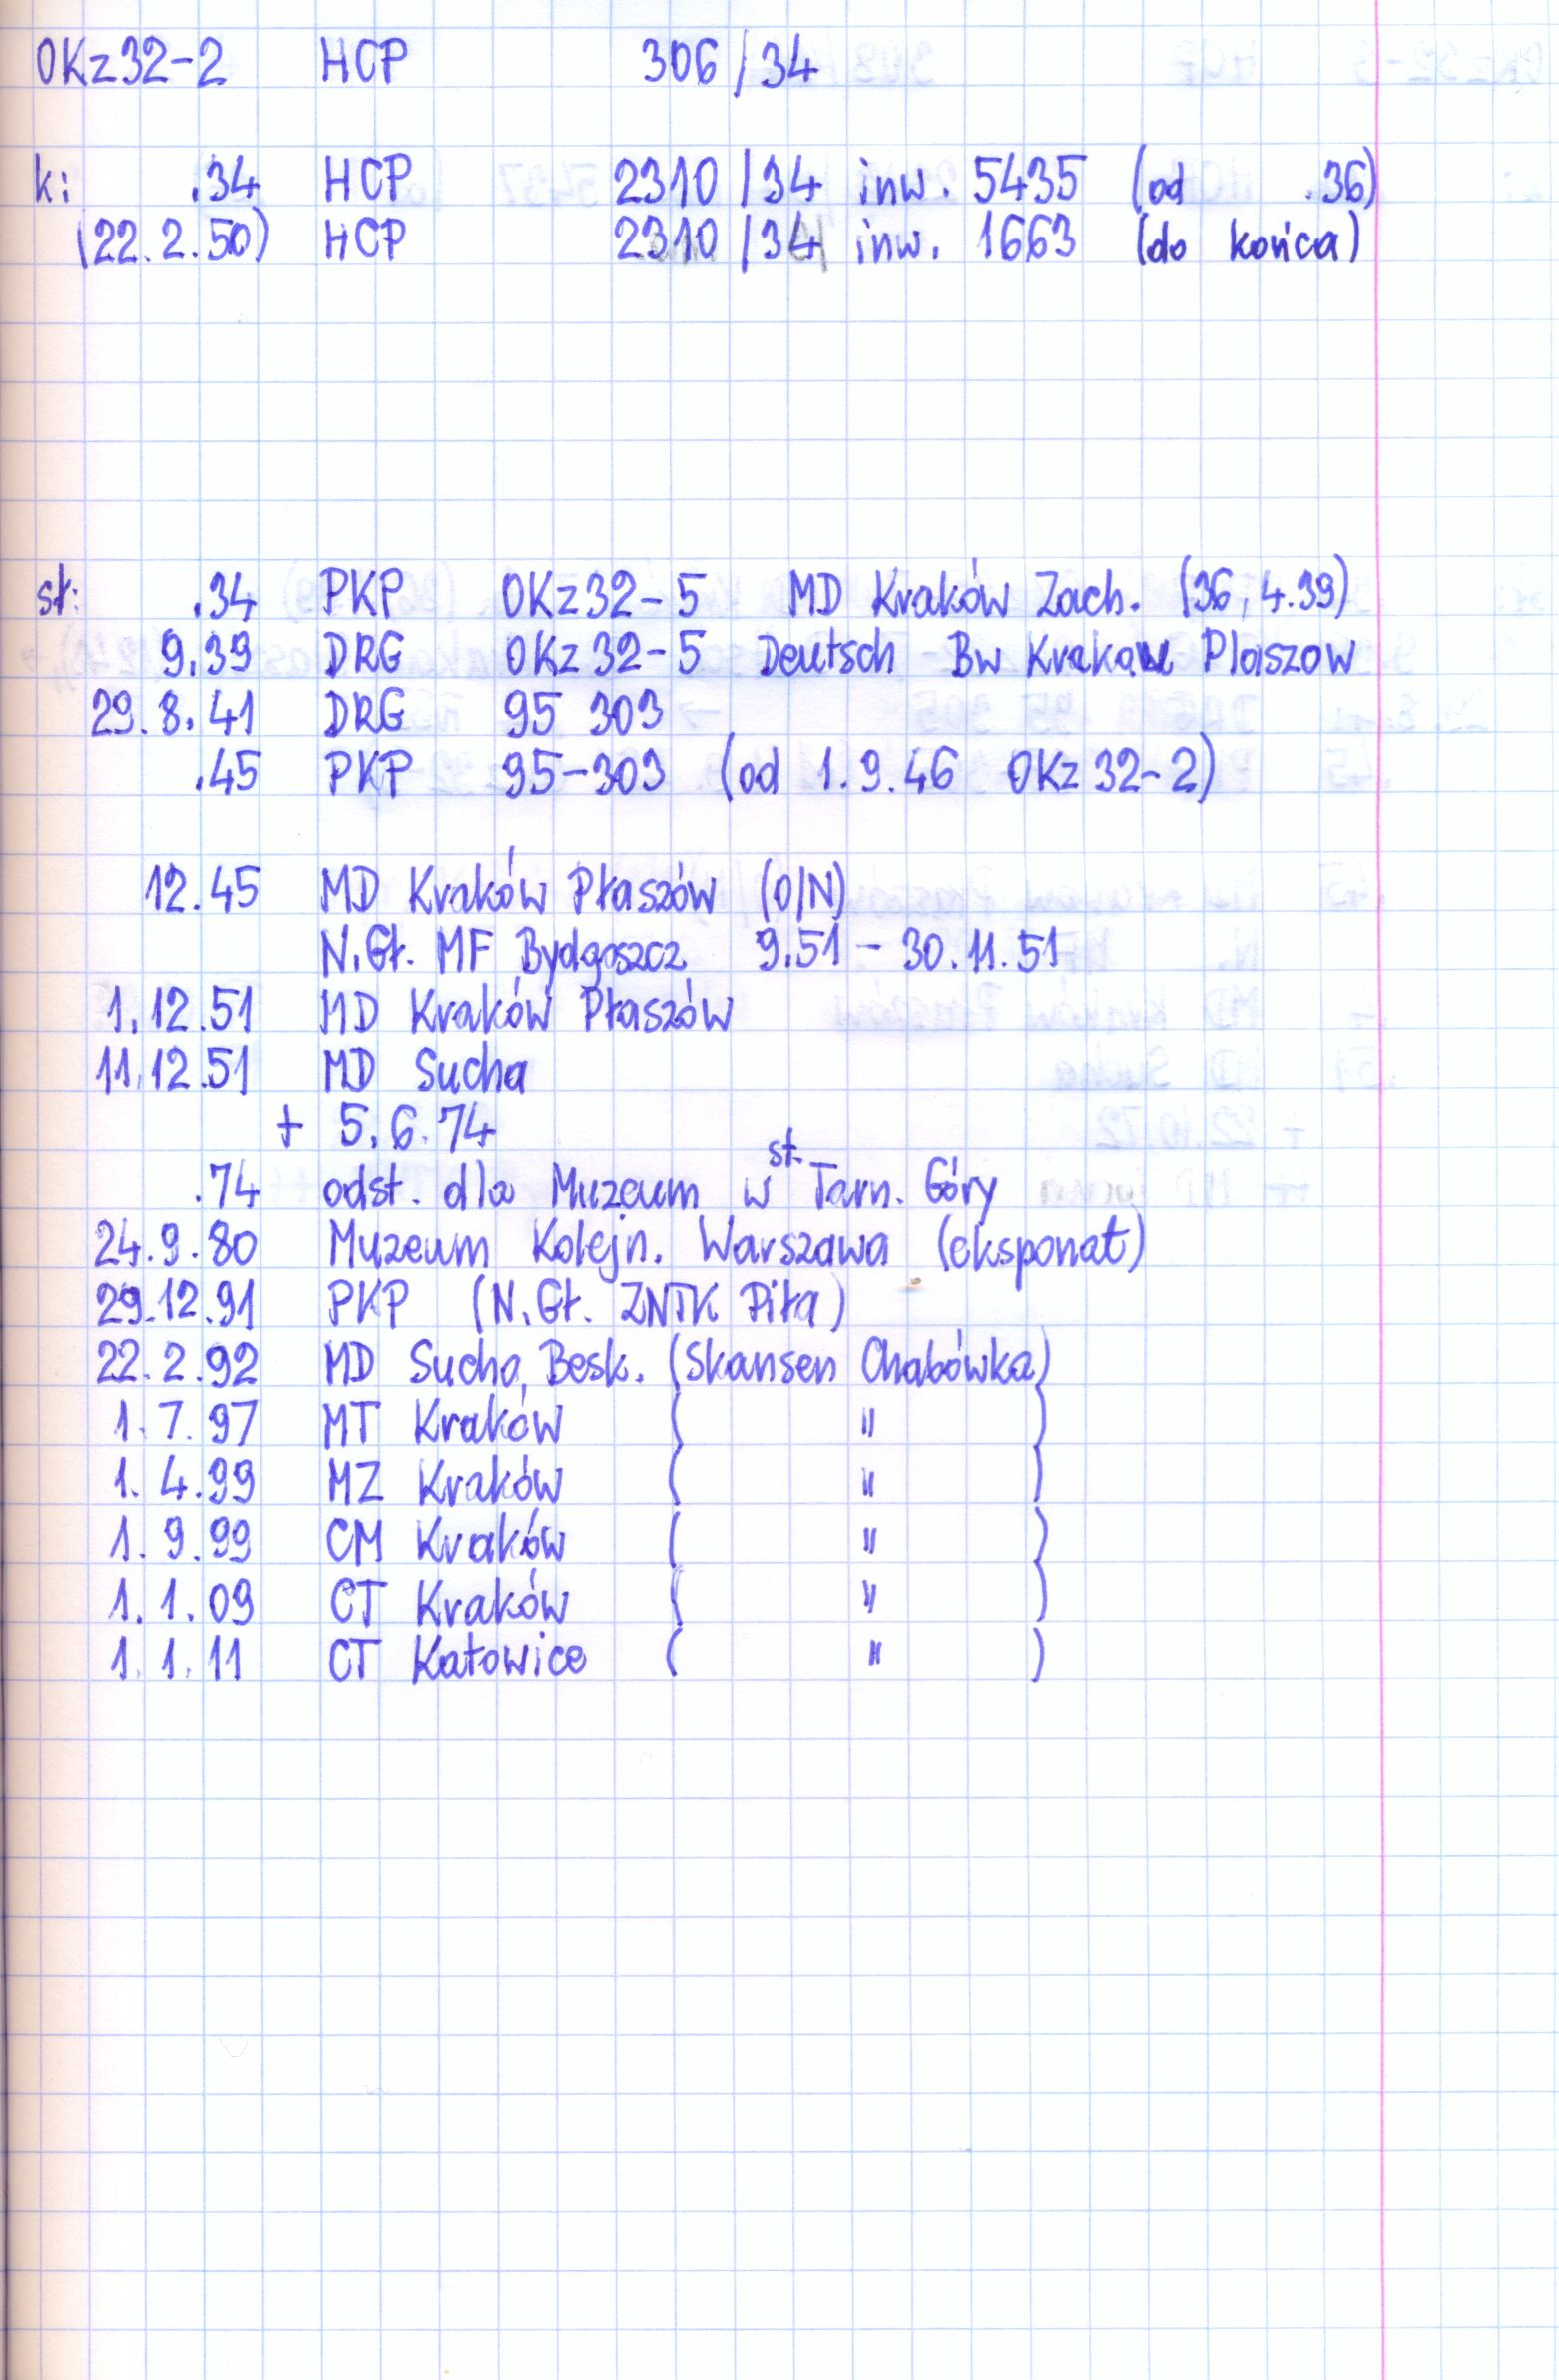 OKz32-2 HCP 306/34
k: .34 HCP 2310/34 inw. 5435 (od .36)
(22.2.50) HCP 2310/34 inw. 1663 (do końca)
st: .34 PKP OKz32-5 MD Kraków Zach. (36, 4.39)
9.39 DRG OKz32-5 Deutsch Bw Krakau Plaszow
29.8.41 DRG 95 303
.45 PKP 95-303 (od 1.9.46 OKz32-2)
12.45 MD Kraków Płaszów (O/N)
N.Gł. MF Bydgoszcz 9.51 - 30.11.51
1.12.51 MD Kraków Płaszów
11.12.51 MD Sucha
+ 5.6.74
.74 odst. dla Muzeum w st. Tarn. Góry
24.9.80 Muzeum Kolejn. Warszawa (eksponat)
29.12.91 PKP (N.Gł. ZNTK Piła)
22.2.92 MD Sucha Besk. (Skansen Chabówka)
1.7.97 MT Kraków ( " )
1.4.99 MZ Kraków ( " )
1.9.99 CM Kraków ( " )
1.1.09 CT Kraków ( " )
1.1.11 CT Katowice ( " )